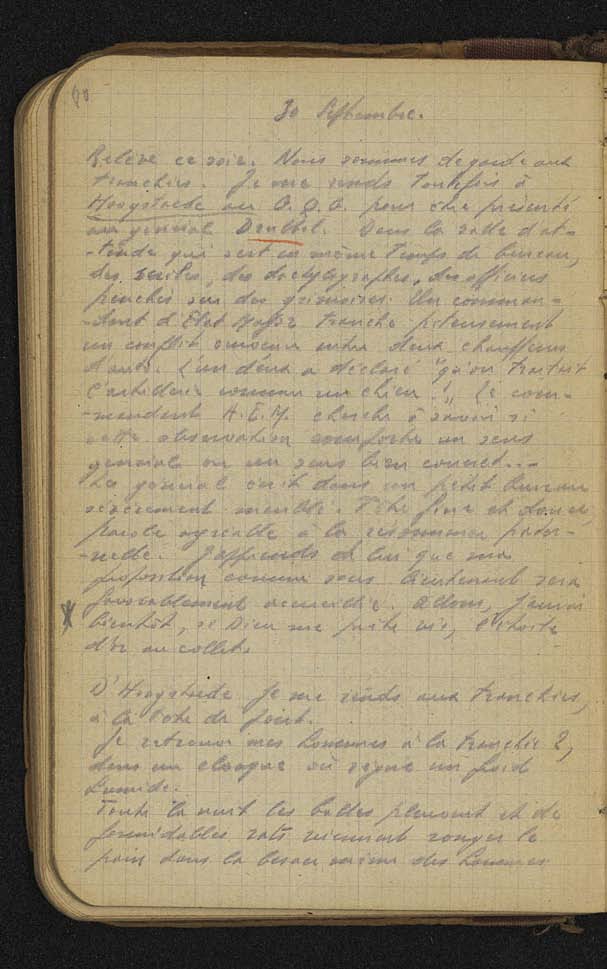 60
30 Septembre.
Relève ce soir. Nous sommes de garde aux
tranchées. Je me rends toutefois à
Hoogstaede au G.Q.G. pour être présenté
au général Drubbel. Dans la salle d'at-
-tende qui sert en même temps de bureau,
des scribes, des dactylographes, des officiers
penchés sur des grimoires. Un comman-
-dant d'Etat Major tranche piteusement
un conflit survenu entre deux chauffeurs
d'auto. L'un d'eux a déclaré "qu'on traitait
l'artillerie comme un chien!" Le com-
-mandant A.E.M. cherche à savoir si
cette observation comporte un sens
général ou un sens bien concret...
Le général écrit dans un petit bureau
sévèrement meublé. Tête fine et douce,
parole agréable à la résonnance pater-
-nelle. J'apprends de lui que ma
proposition comme sous lieutenant sera
favorablement accueillie. Allons, j'aurai
bientôt, si Dieu me prête vie, l'étoile
d'or au collet.
D'Hoogstaede je me rends aux tranchées,
à la tête de pont.
Je retrouve mes hommes à la tranchée 2,
dans un cloaque où règne un froid
humide.
Toute la nuit les balles pleuvent et de
formidables rats viennent ronger le
pain dans la besace même des hommes